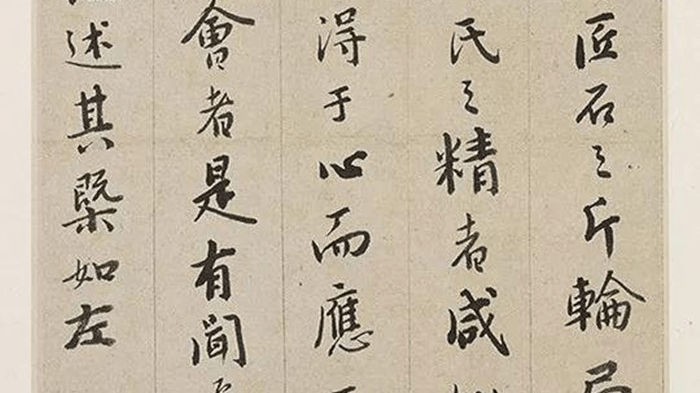 匠石之斤輪
氏之精者咸
得于心而應
會者是有聞
述其槩如左